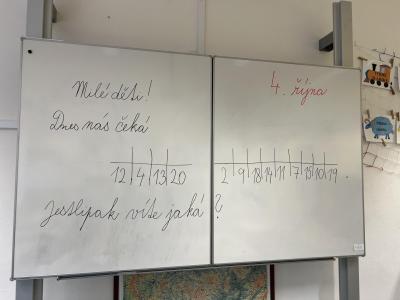 Milé děti!
4. října
Dnes nás čeká
12 4 13 20 2 9 18 14 11 7 15 10 19 .
Jestlipak víte jaká ?